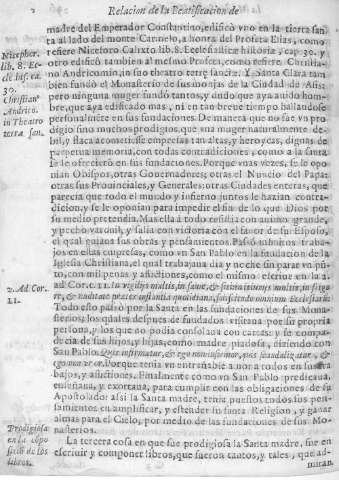 2 Relacion de la Beatificacion de
madre del Emperador Constantino, edificò vno en la tierra san
ta al lado del monte Carmelo, a honra del Profeta Elias, como
Nicephor. refiere Niceforo Calixto lib. 8. Ecclesiasticæ historiæ, cap. 30. y
lib. 8. Ec- otro edificò tambien al mesmo Profeta, como refiere Christia-
cle hist. ca. no Andricomio, in suo theatro terræ sanctæ. Y Santa Clara tam
30. bien fundò el Monasterio de sus monjas de la Ciudad de Asis;
Christian° pero ninguna muger fundò tantos, y dudo que aya auido hom-
Andrico. bre, que aya edificado mas, ni en tan breue tiempo hallandose
in Theatro personalmente en sus fundaciones. De manera que no sae vn pro
terræ san. digio sino muchos prodigios, que vna muger naturalmente de-
bil, y flaca acometiesse empresas tan altas, y heroycas, dignas de
perpetua memoria, con todas contradiciones, como a la santa
se le ofrecierō en sus fundaciones. Porque vnas vezes, se le opo
nian Obispos, otras Gouernadores; otras el Nuncio del Papa;
otras sus Prouinciales, y Generales; otras Ciudades enteras, que
parecia que todo el mundo y infierno juntos le hazian contra-
dicion, y se le oponian para impedir esso de lo que Dios por
su medio pretendia. Mas ella à todo resistia con animo grande,
y pecho varonil, y salia con victoria con el fauor de su Esposo,
el qual guiaua sus obras y pensamientos. Passò infinitos traba-
jos en estas empresas, como vn San Pablo en la fundacion de la
Iglesia Christiana, el qual trabajaua dia y noche sin parar vn pū-
to, con mil penas y aflicciones, como el mismo escriue en la 2.
2. Ad Cor. ad Cor. c. 11. In vigilijs multis, in fame, & siti in ieiunijs multis, in frigo
11. re, & nuditate præter instantia quotidiana, solicitudo omnium Ecclesiarū.
Todo esto passò por la Santa en las fundaciones de sus Mona-
sterios; los quales despues de fundados visitaua por su propria
persona, y los que no podia consolaua con cartas; y se compa-
decia de sus hijos, y hijas, como madre piadosa, diziendo con
San Pablo. Quis infirmatur, & ego non infirmor, quis scandalizatur, &
ego non vror. Porque tenia vn entrañable amor a todos en sus tra
bajos, y aflicciones. Finalmente como vn San Pablo predicaua,
enseñaua, y exortaua, para cumplir con las obligaciones de su
Apostolado: assi la Santa madre, tenia puestos todos sus pen-
samientos en amplificar, y estender su santa Religion, y ganar
almas para el Cielo, por medio de las fundaciones de sus Mo-
Prodigiosa nasterios.
en la cōpo La tercera cosa en que fue prodigiosa la Santa madre, fue en
sicion de los escriuir y componer libros, que fueron tantos, y tales, que ad-
libros. miran.